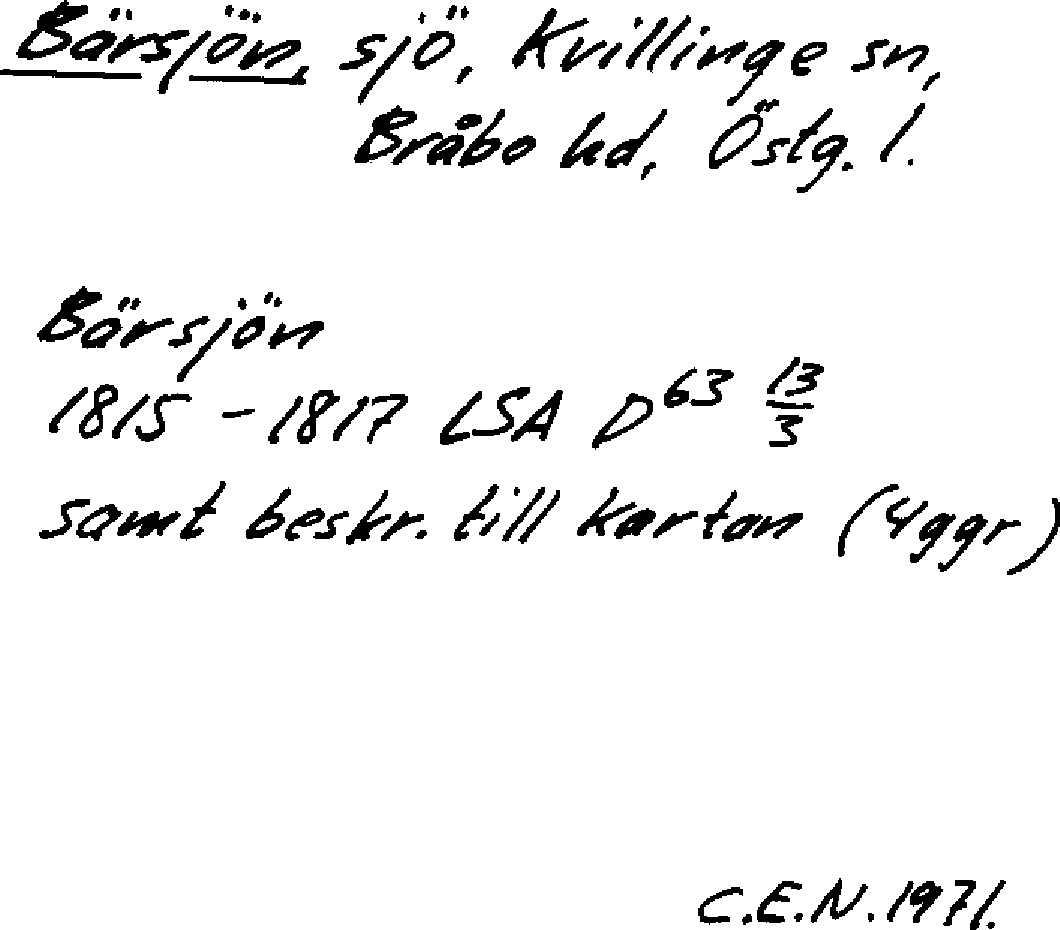 Bärsjön, sjö, Kvillinge sn,
Bråbo hd, Östg. l.
Bärsjön
1815 - 1817 LSA D⁶³ 13/3
samt beskr. till kartan (4ggr)
C.E.N. 1971.